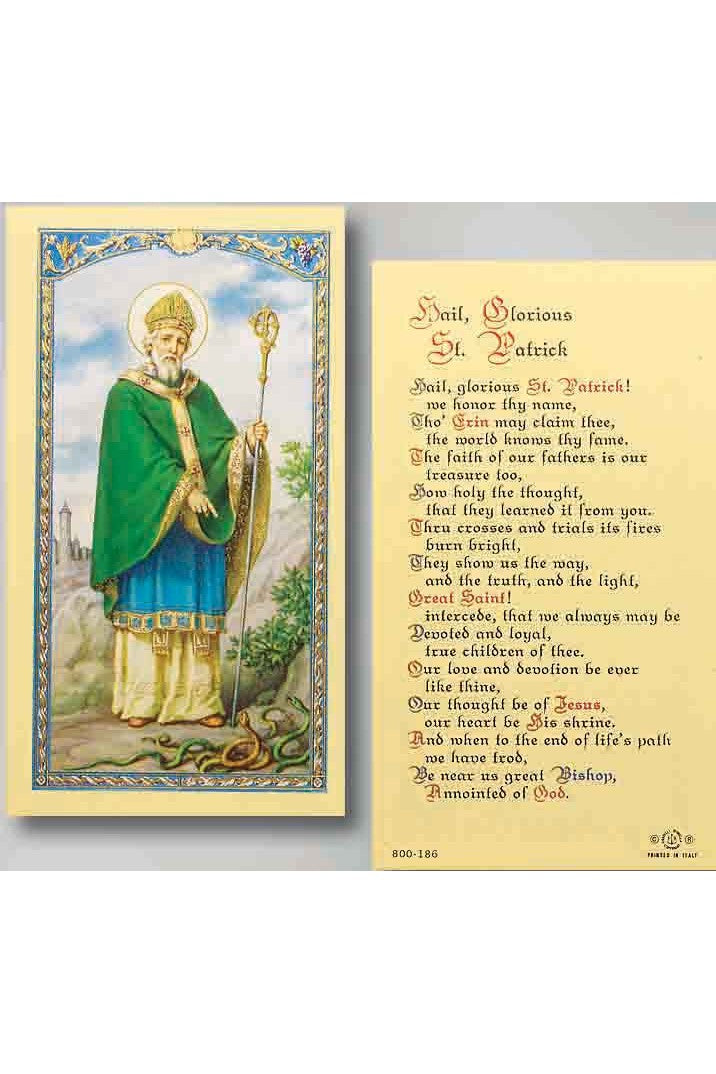 Hail, Glorious
St. Patrick
Hail, glorious St. Patrick!
we honor thy name,
Tho' Erin may claim thee,
the world knows thy fame.
The faith of our fathers is our
treasure too,
How holy the thought,
that they learned it from you.
Thru crosses and trials its fires
burn bright,
They show us the way,
and the truth, and the light,
Great Saint!
intercede, that we always may be
Devoted and loyal,
true children of thee.
Our love and devotion be ever
like thine,
Our thought be of Jesus,
our heart be His shrine.
And when to the end of life's path
we have trod,
Be near us great Bishop,
Annointed of God.
800-186
© ®
PRINTED IN ITALY